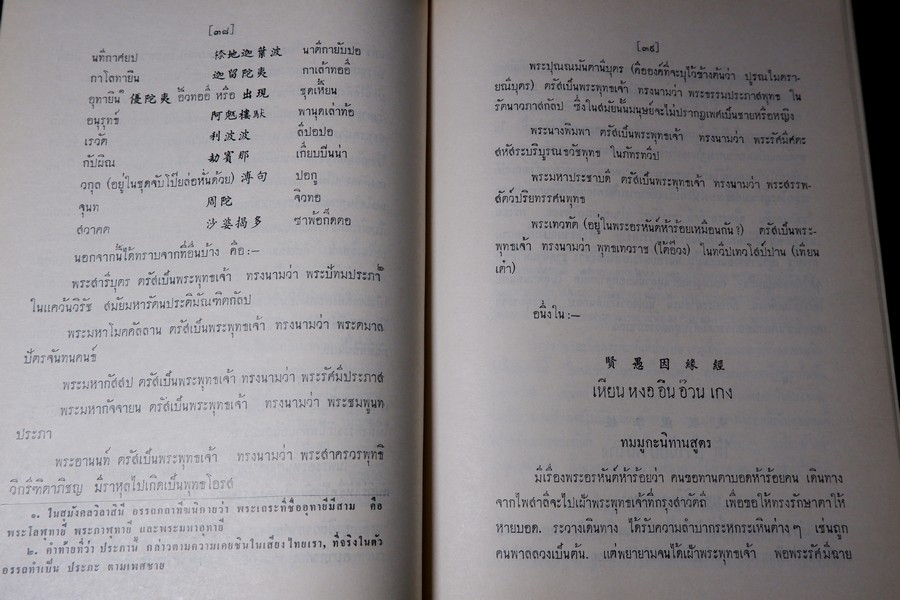 [๓๘]
นทีกาศยป 捺地迦葉波 นาตี้กายับปอ
กาโลทายิน 迦留陀夷 กาเล้าทออี๊
อุทายิน๑ 優陀夷 อิวทออี๊ หรือ 出現 ชุดเหี้ยน
อนุรุทธ์ 阿㝹樓馱 พานุคเล่าท้อ
เรวัต 利波波 ลี่ปอปอ
กัปผิณ 劫賓那 เกี๊ยบปินน่า
วกุล (อยู่ในชุดจับโป๊ยล่อหั้นด้วย) 溥句 ปอกู
จุนท 周陀 จิวทอ
สวาคต 沙婆揭多 ซาพ้อกิ๊ดตอ
นอกจากนี้ได้ทราบจากที่อื่นบ้าง คือ:–
พระสารีบุตร ตรัสเป็นพระพุทธเจ้า ทรงนามว่า พระปัทมประภา๒
ในแคว้นวิรัช สมัยมหารัตนประติมัณฑิตกัลป
พระมหาโมคคัลลาน ตรัสเป็นพระพุทธเจ้า ทรงนามว่า พระตมาล
ปัตรจันทนคนธ์
พระมหากัสสป ตรัสเป็นพระพุทธเจ้า ทรงนามว่า พระรัศมีประภาส
พระมหากัจจายน ตรัสเป็นพระพุทธเจ้า ทรงนามว่า พระชมพูนท
ประภา
พระอานนท์ ตรัสเป็นพระพุทธเจ้า ทรงนามว่า พระสาครวรพุทธิ
วิกรีฑิตาภิชญ มีราหุลไปเกิดเป็นพุทธโอรส
๑. ในสุมังคลวิลาสินี อรรถกถาทีฆนิกายว่า พระเถระที่ชื่ออุทายีมีสาม คือ
พระโลฬุทายี พระกาฬุทายี และพระมหาอุทายี
๒. คำท้ายที่ว่า ประภานี้ กล่าวตามความเคยชินในเสียงไทยเรา, ที่จริงในตัว
อรรถทำเป็น ประภะ ตามเพศชาย
[๓๙]
พระปุณณมันตานีบุตร (คือองค์ที่จะบุไว้ข้างต้นว่า ปุรณไมตรา-
ยณีบุตร) ตรัสเป็นพระพุทธเจ้า ทรงนามว่า พระธรรมประภาสพุทธ ใน
รัตนาวภาสกัลป ซึ่งในสมัยนั้นมนุษย์จะไม่ปรากฏเพศเป็นชายหรือหญิง
พระนางพิมพา ตรัสเป็นพระพุทธเจ้า ทรงนามว่า พระรัศมีศตะ
สหัสระบริบูรณธวัชพุทธ ในภัทรทวีป
พระมหาประชาบดี ตรัสเป็นพระพุทธเจ้า ทรงนามว่า พระสรรพ-
สัตว์ปริยทรรศนพุทธ
พระเทวทัต (อยู่ในพระอรหันต์ห้าร้อยเหมือนกัน?) ตรัสเป็นพระ-
พุทธเจ้า ทรงนามว่า พุทธเทวราช (ไต้อ๊วง) ในทวีปเทวโสปาน (เทียน
เต๋า)
อนึ่งใน:–
賢愚因緣經
เหียน หงอ อิน อ๊วน เกง
ทมมูกะนิทานสูตร
มีเรื่องพระอรหันต์ห้าร้อยว่า คนขอทานตาบอดห้าร้อยคน เดินทาง
จากไพสาลีจะไปเฝ้าพระพุทธเจ้าที่กรุงสาวัตถี เพื่อขอให้ทรงรักษาตาให้
หายบอด. ระวางเดินทาง ได้รับความลำบากระหกระเหินต่าง ๆ เช่นถูก
คนพาลลวงเป็นต้น. แต่พยายามจนได้เฝ้าพระพุทธเจ้า พอพระรัศมีฉาย